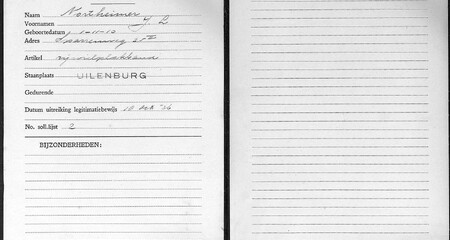 Naam Northeimer
Voornamen J. L
Geboortedatum 1-11-13
Adres
Artikel
Staanplaats UILENBURG
Gedurende
Datum uitreiking legitimatiebewijs 10 '36
No. soll.lijst 2
BIJZONDERHEDEN: